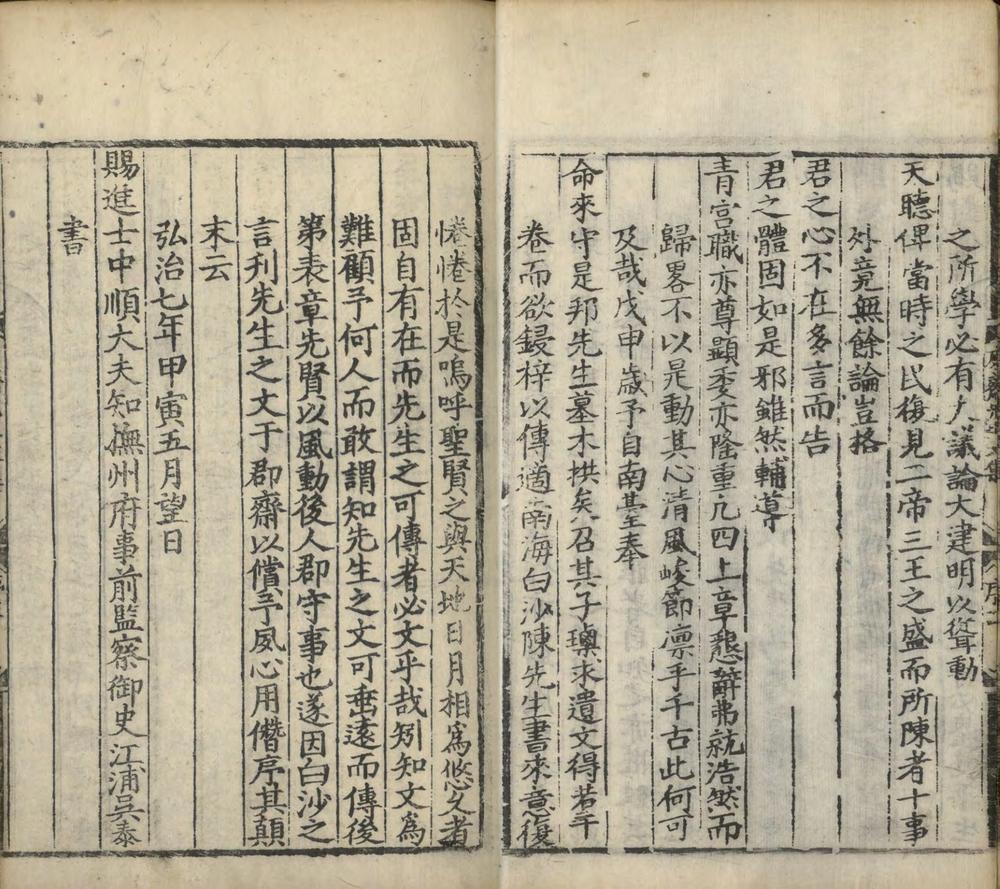 之所學必有大議論大建明以聳動
天聽俾當時之民復見二帝三王之盛而所陳者十事
外竟無餘論豈格
君之心不在多言而告
君之體固如是邪雖然輔導
青宮職亦尊顯委亦隆重凢四上章懇辭弗就浩然而
歸畧不以是動其心清風峻節凛乎千古此何可
及哉戊申歲予自南臺奉
命來守是邦先生墓木拱矣召其子璵求遺文得若干
卷而欲鋟梓以傳適南海白沙陳先生書來意復
惓惓於是嗚呼聖賢之與天地日月相爲悠久者
固自有在而先生之可傳者必文乎哉矧知文爲
難顧予何人而敢謂知先生之文可垂遠而傳後
第表章先賢以風動後人郡守事也遂因白沙之
言刊先生之文于郡齋以償予夙心用僣序其顛
末云
弘治七年甲寅五月望日
賜進士中順大夫知撫州府事前監察御史江浦吳泰
書